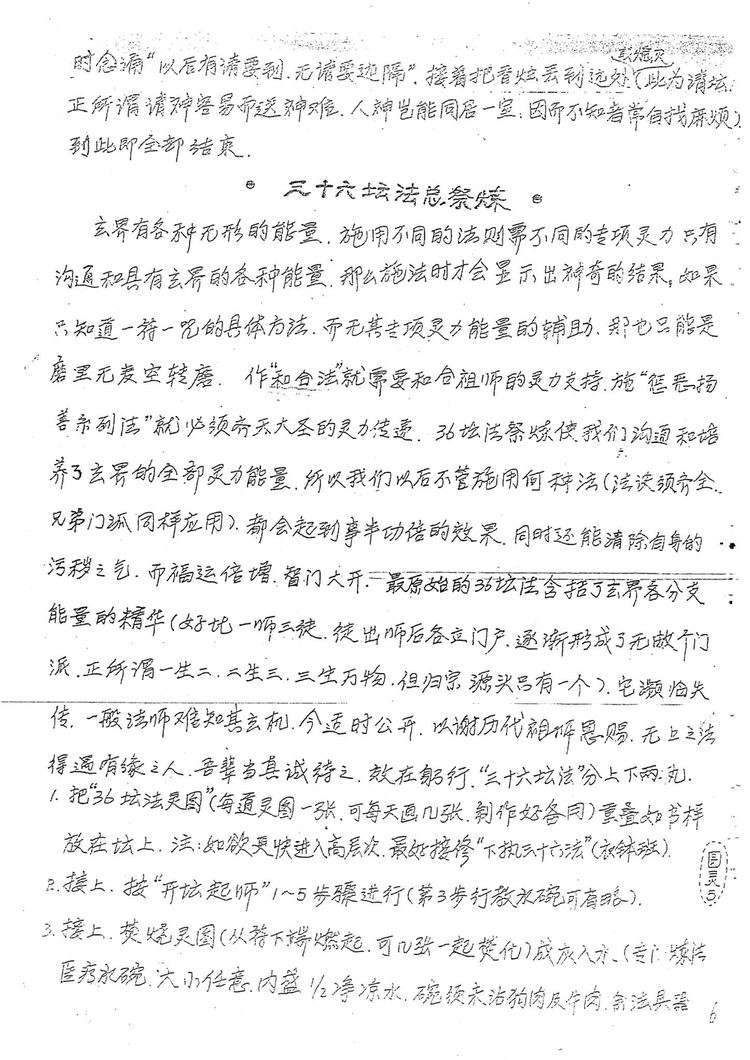 时念诵“以后有请要到.无请要远隔”.接着把香炷丢到远处(此为清坛.
正所谓请神容易而送神难.人神岂能同居一室.因而不知者常自找麻烦)
到此即全部结束.
三十六坛法总祭炼
玄界有各种无形的能量.施用不同的法则需不同的专项灵力.只有
沟通和具有玄界的各种能量.那么施法时才会显示出神奇的结果。如果
只知道一符一咒的具体方法.而无其专项灵力能量的辅助.那也只能是
磨里无麦空转磨.作“和合法”就需要和合祖师的灵力支持.施“惩恶扬
善系列法”就必须齐天大圣的灵力传递.36坛法祭炼使我们沟通和培
养了玄界的全部灵力能量.所以我们以后不管施用何种法(法诀须齐全.
兄弟门派同样应用).都会起到事半功倍的效果.同时还能清除自身的
污秽之气.而福运倍增.智门大开.最原始的36坛法含括了玄界各分支
能量的精华(好比一师三徒.徒出师后各立门户.逐渐形成了无数个门
派.正所谓一生二.二生三.三生万物.但归宗源头只有一个).它濒临失
传.一般法师难知其玄机.今适时公开.以谢历代祖师恩赐.无上之法
得遇有缘之人.吾辈当真诚待之.效在躬行.“三十六坛法”分上下两丸.
1.把“36坛法灵图”(每道灵图一张.可每天画几张.制作好备用)重叠如书样
放在坛上.注:如欲更快进入高层次.最好接修“下执三十六法”(衣钵班).
2.接上.按“开坛起师”1~5步骤进行(第3步行教水碗可有略).
3.接上.焚烧灵图(从符下端燃起.可几张一起焚化)成灰入水.(专门炼法
医疗水碗.大小任意.内盛1/2净凉水.碗须未沾狗肉及牛肉.
6